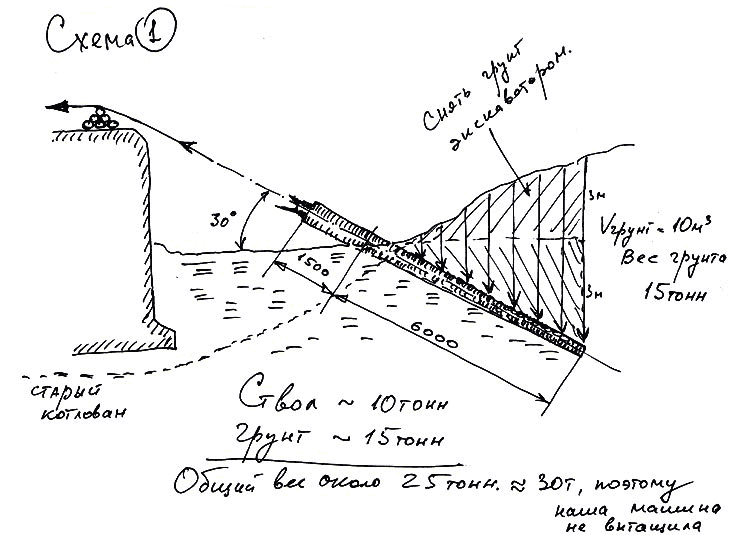 Схема 1
Снять грунт
экскаватором.
30°
3м
Vгрунт = 10м³
Вес грунта
15тонн
3м
1500
6000
старый
котлован
Ствол ~ 10тонн
грунт ~ 15тонн
Общий вес около 25тонн. ≈ 30т, поэтому
наша машина
не витащила